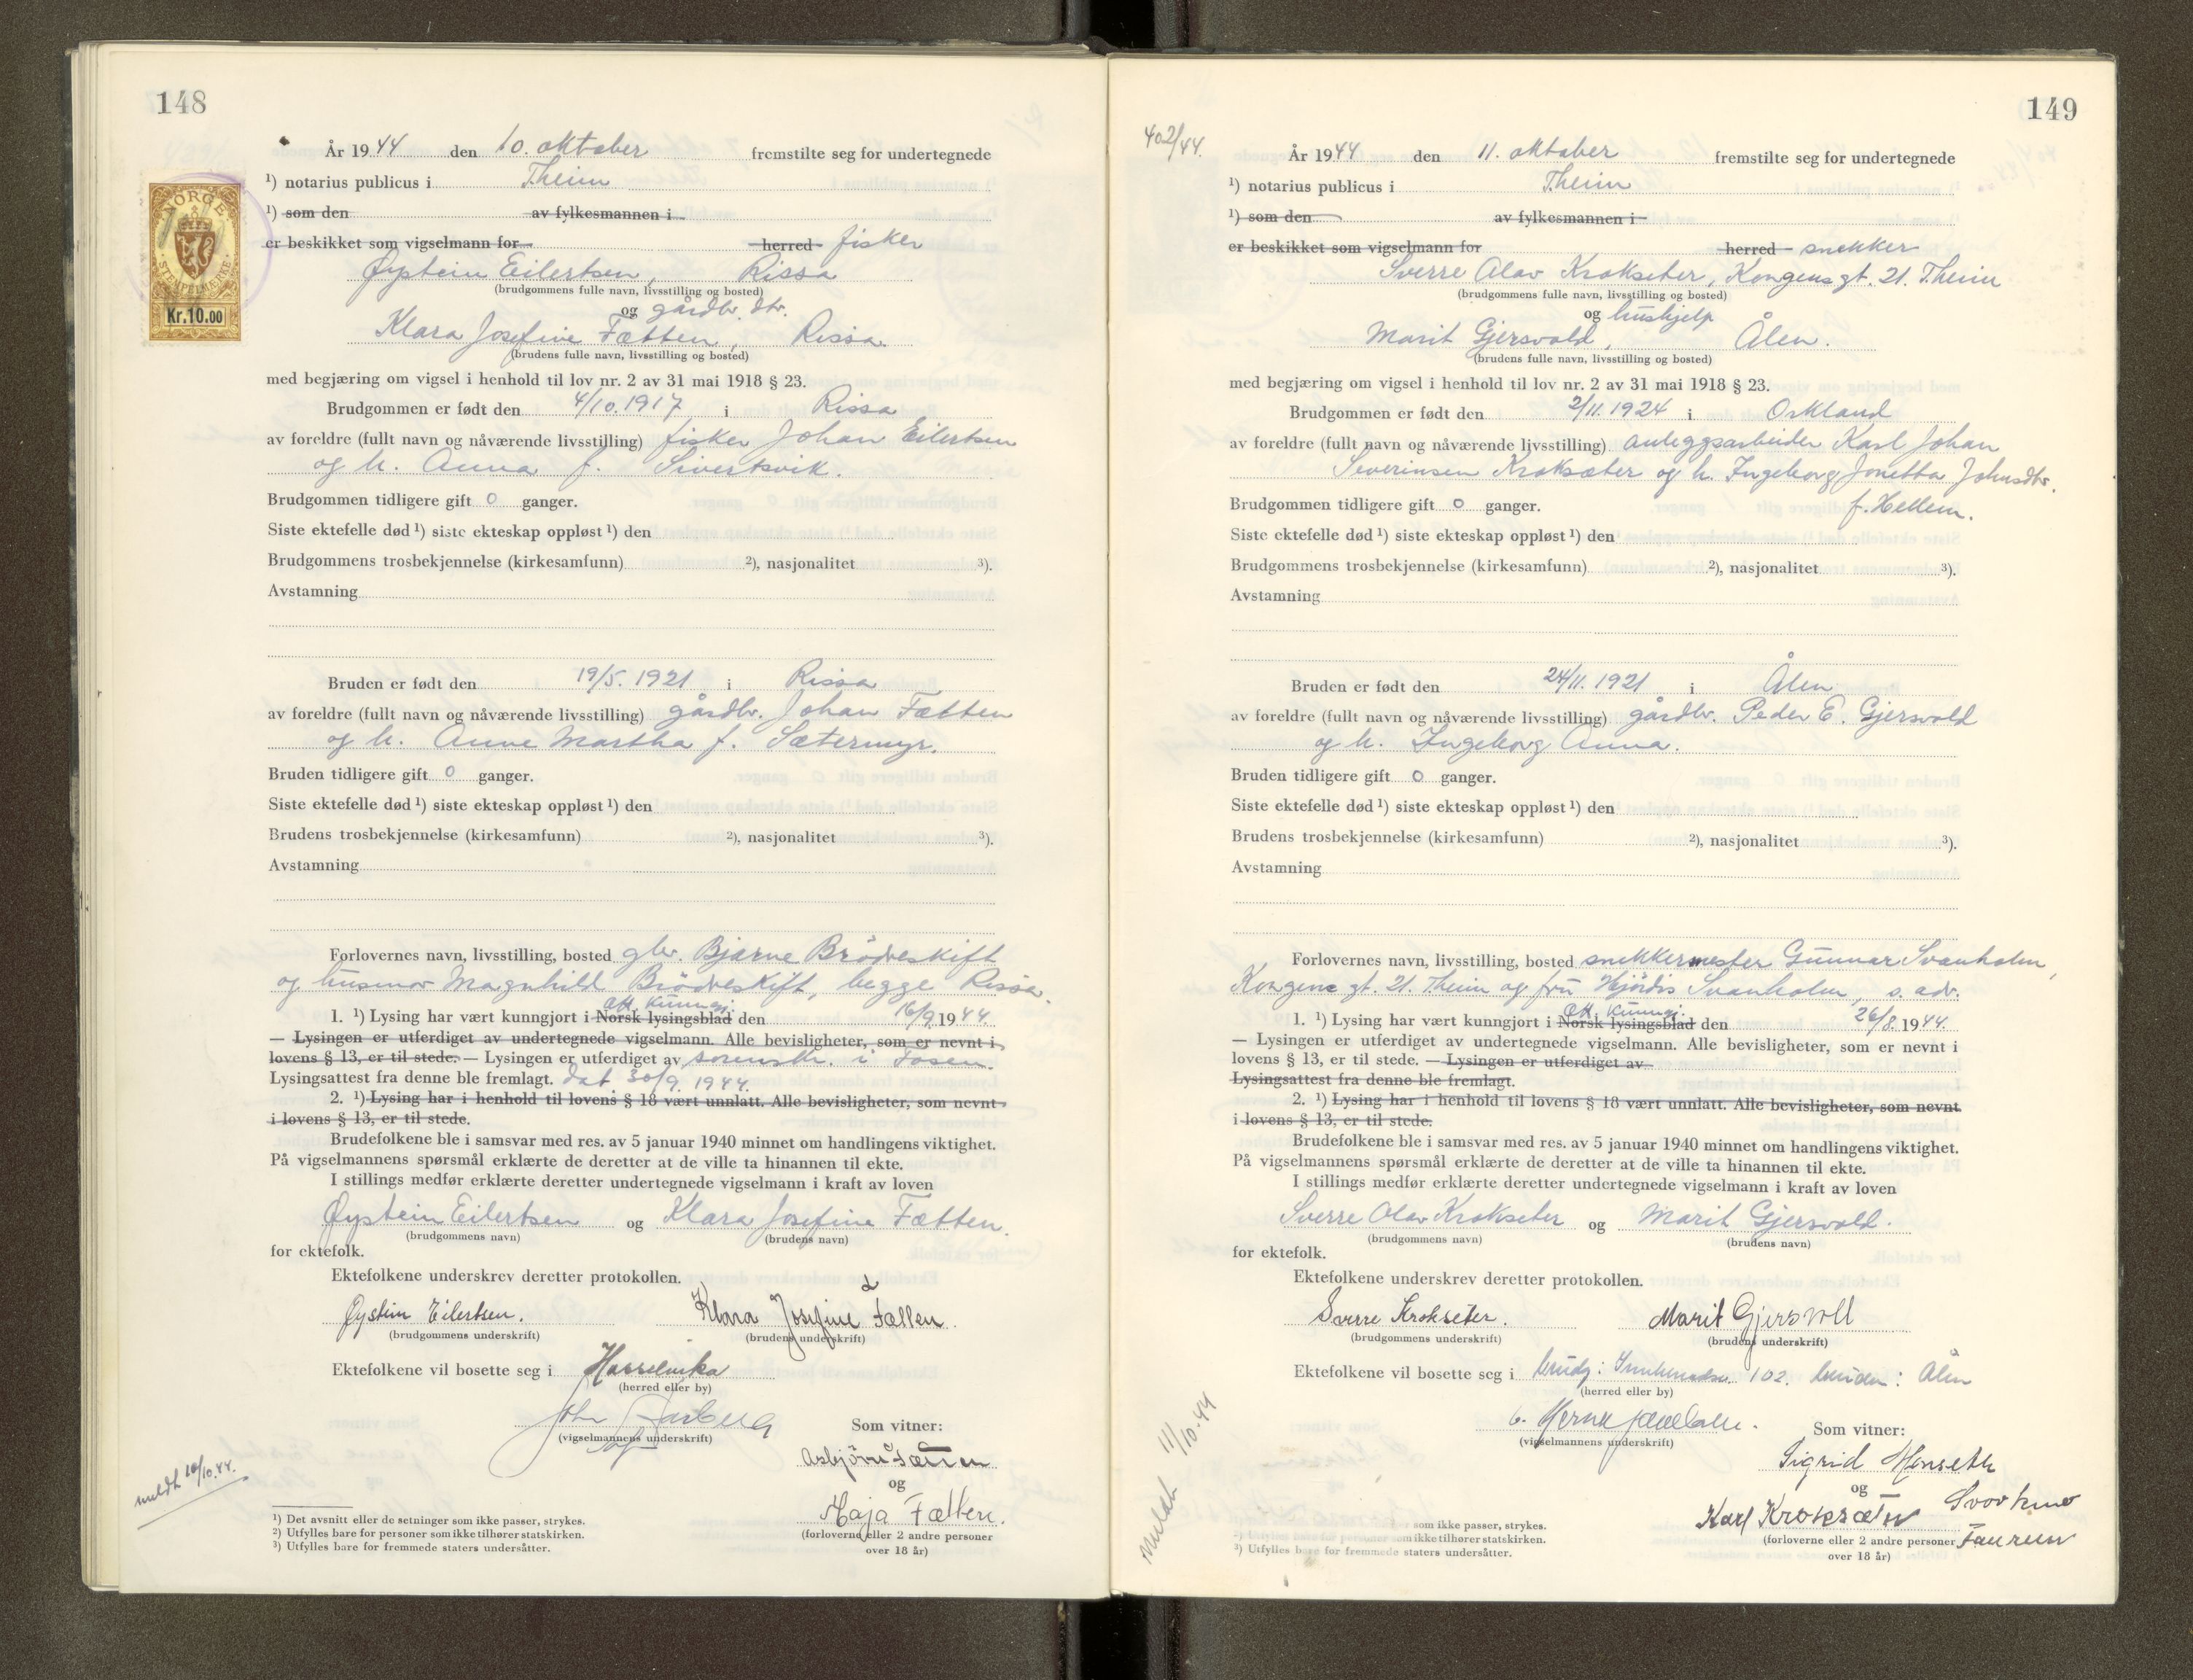 148
År 1944 den 10. oktober fremstilte seg for undertegnede
¹) notarius publicus i Theim
¹) som den av fylkesmannen i
er beskikket som vigselmann for herred fisker
Øystein Eilertsen, Rissa
(brudgommens fulle navn, livsstilling og bosted)
og gårdbr. dtr.
Klara Josefine Fætten, Rissa
(brudens fulle navn, livsstilling og bosted)
med begjæring om vigsel i henhold til lov nr. 2 av 31 mai 1918 § 23.
Brudgommen er født den 4/10.1917 i Rissa
av foreldre (fullt navn og nåværende livsstilling) fisker Johan Eilertsen
og h. Anna f. Sivertsvik.
Brudgommen tidligere gift 0 ganger.
Siste ektefelle død ¹) siste ekteskap oppløst ¹) den
Brudgommens trosbekjennelse (kirkesamfunn) ²), nasjonalitet ³).
Avstamning
Bruden er født den 19/5. 1921 i Rissa
av foreldre (fullt navn og nåværende livsstilling) gårdbr. Johan Fætten
og h. Anne Martha f. Sætermyr.
Bruden tidligere gift 0 ganger.
Siste ektefelle død ¹) siste ekteskap oppløst ¹) den
Brudens trosbekjennelse (kirkesamfunn) ²), nasjonalitet ³).
Avstamning
Forlovernes navn, livsstilling, bosted gbr. Bjarne Brödreskift
og husmor Magnhild Brödreskift, begge Rissa.
off. kunngj.
1. ¹) Lysing har vært kunngjort i Norsk lysingsblad den 16/9.1944.
— Lysingen er utferdiget av undertegnede vigselmann. Alle bevisligheter, som er nevnt i
lovens § 13, er til stede. — Lysingen er utferdiget av sorenskr. i Fosen.
Lysingsattest fra denne ble fremlagt. dat. 30/9. 1944.
2. ¹) Lysing har i henhold til lovens § 18 vært unnlatt. Alle bevisligheter, som nevnt
i lovens § 13, er til stede.
Brudefolkene ble i samsvar med res. av 5 januar 1940 minnet om handlingens viktighet.
På vigselmannens spørsmål erklærte de deretter at de ville ta hinannen til ekte.
I stillings medfør erklærte deretter undertegnede vigselmann i kraft av loven
Øystein Eilertsen og Klara Josefine Fætten.
(brudgommens navn) (brudens navn)
for ektefolk.
Ektefolkene underskrev deretter protokollen.
Øystein Eilertsen. Klara Josefine Fætten.
(brudgommens underskrift) (brudens underskrift)
Ektefolkene vil bosette seg i Hasselvika
(herred eller by)
(vigselmannens underskrift)
Som vitner:
Asbjörn Fætten
og
Maja Fætten.
(forloverne eller 2 andre personer
over 18 år)
meldt 10/10.44.
¹) Det avsnitt eller de setninger som ikke passer, strykes.
²) Utfylles bare for personer som ikke tilhører statskirken.
³) Utfylles bare for fremmede staters undersåtter.
NORGE
STEMPELMERKE
Kr.10.00
149
402/44.
År 1944 den 11. oktober fremstilte seg for undertegnede
¹) notarius publicus i Theim
¹) som den av fylkesmannen i
er beskikket som vigselmann for herred snekker
Sverre Olav Krokseter, Kongensgt. 21. Theim
(brudgommens fulle navn, livsstilling og bosted)
og hushjelp
Marit Gjersvold, Ålen.
(brudens fulle navn, livsstilling og bosted)
med begjæring om vigsel i henhold til lov nr. 2 av 31 mai 1918 § 23.
Brudgommen er født den 2/11. 1924 i Orkland
av foreldre (fullt navn og nåværende livsstilling) anleggsarbeider Karl Johan
Severinsen Kroksæter og h. Ingeborg Jonetta Johnsdtr.
f. Hellem.
Brudgommen tidligere gift 0 ganger.
Siste ektefelle død ¹) siste ekteskap oppløst ¹) den
Brudgommens trosbekjennelse (kirkesamfunn) ²), nasjonalitet ³).
Avstamning
Bruden er født den 24/11. 1921 i Ålen
av foreldre (fullt navn og nåværende livsstilling) gårdbr. Peder E. Gjersvold
og h. Ingeborg Anna.
Bruden tidligere gift 0 ganger.
Siste ektefelle død ¹) siste ekteskap oppløst ¹) den
Brudens trosbekjennelse (kirkesamfunn) ²), nasjonalitet ³).
Avstamning
Forlovernes navn, livsstilling, bosted snekkermester Gunnar Svanholm,
Kongens gt. 21. Theim og fru Hjördis Svanholm, s. adr.
off. kunngj.
1. ¹) Lysing har vært kunngjort i Norsk lysingsblad den 26/8. 1944.
— Lysingen er utferdiget av undertegnede vigselmann. Alle bevisligheter, som er nevnt i
lovens § 13, er til stede. — Lysingen er utferdiget av
Lysingsattest fra denne ble fremlagt.
2. ¹) Lysing har i henhold til lovens § 18 vært unnlatt. Alle bevisligheter, som nevnt
i lovens § 13, er til stede.
Brudefolkene ble i samsvar med res. av 5 januar 1940 minnet om handlingens viktighet.
På vigselmannens spørsmål erklærte de deretter at de ville ta hinannen til ekte.
I stillings medfør erklærte deretter undertegnede vigselmann i kraft av loven
Sverre Olav Krokseter og Marit Gjersvold.
(brudgommens navn) (brudens navn)
for ektefolk.
Ektefolkene underskrev deretter protokollen.
Sverre Krokseter. Marit Gjersvoll
(brudgommens underskrift) (brudens underskrift)
Ektefolkene vil bosette seg i brudg: 102. bruden: Ålen
(herred eller by)
(vigselmannens underskrift)
Som vitner:
Sigrid Monseth
og
Karl Kroksæter
(forloverne eller 2 andre personer
over 18 år)
meldt 11/10.44
som ikke passer, strykes.
²) Utfylles bare for personer som ikke tilhører statskirken.
³) Utfylles bare for fremmede staters undersåtter.